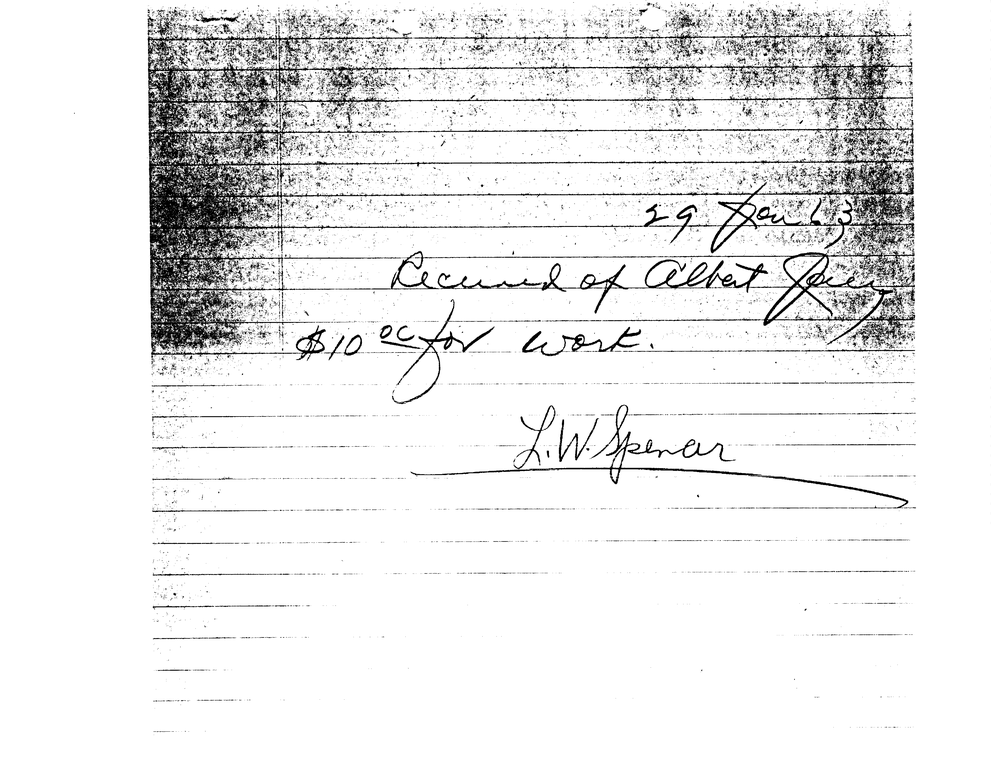 29 Jan 63
Received of Albert
$10 00 for work.
L.W. Spencer